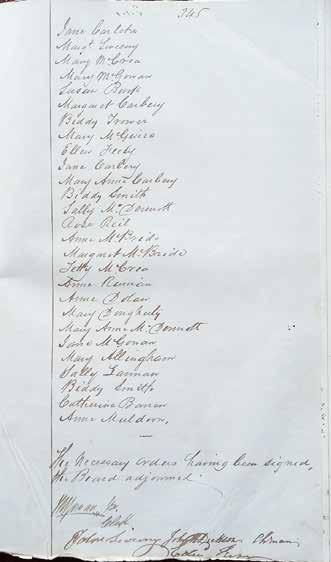 345
Jane Carleton
Margt Sweeny
Mary McCrea
Mary McGowan
Susan Burk
Margaret Carbery
Biddy Trower
Mary McGuire
Ellen Feely
Jane Carbery
Mary Anne Carbery
Biddy Smith
Sally McDermott
Rose Reil
Anne McBride
Margaret McBride
Letty McCrea
Anne
Anne Dolan
Mary Dougherty
Mary Anne McDermott
Jane McGowan
Mary Allingham
Sally Lannan
Biddy Smith
Catherine Barron
Anne Muldoon,
The necessary orders having been signed,
the Board adjourned
Clerk
John Chman